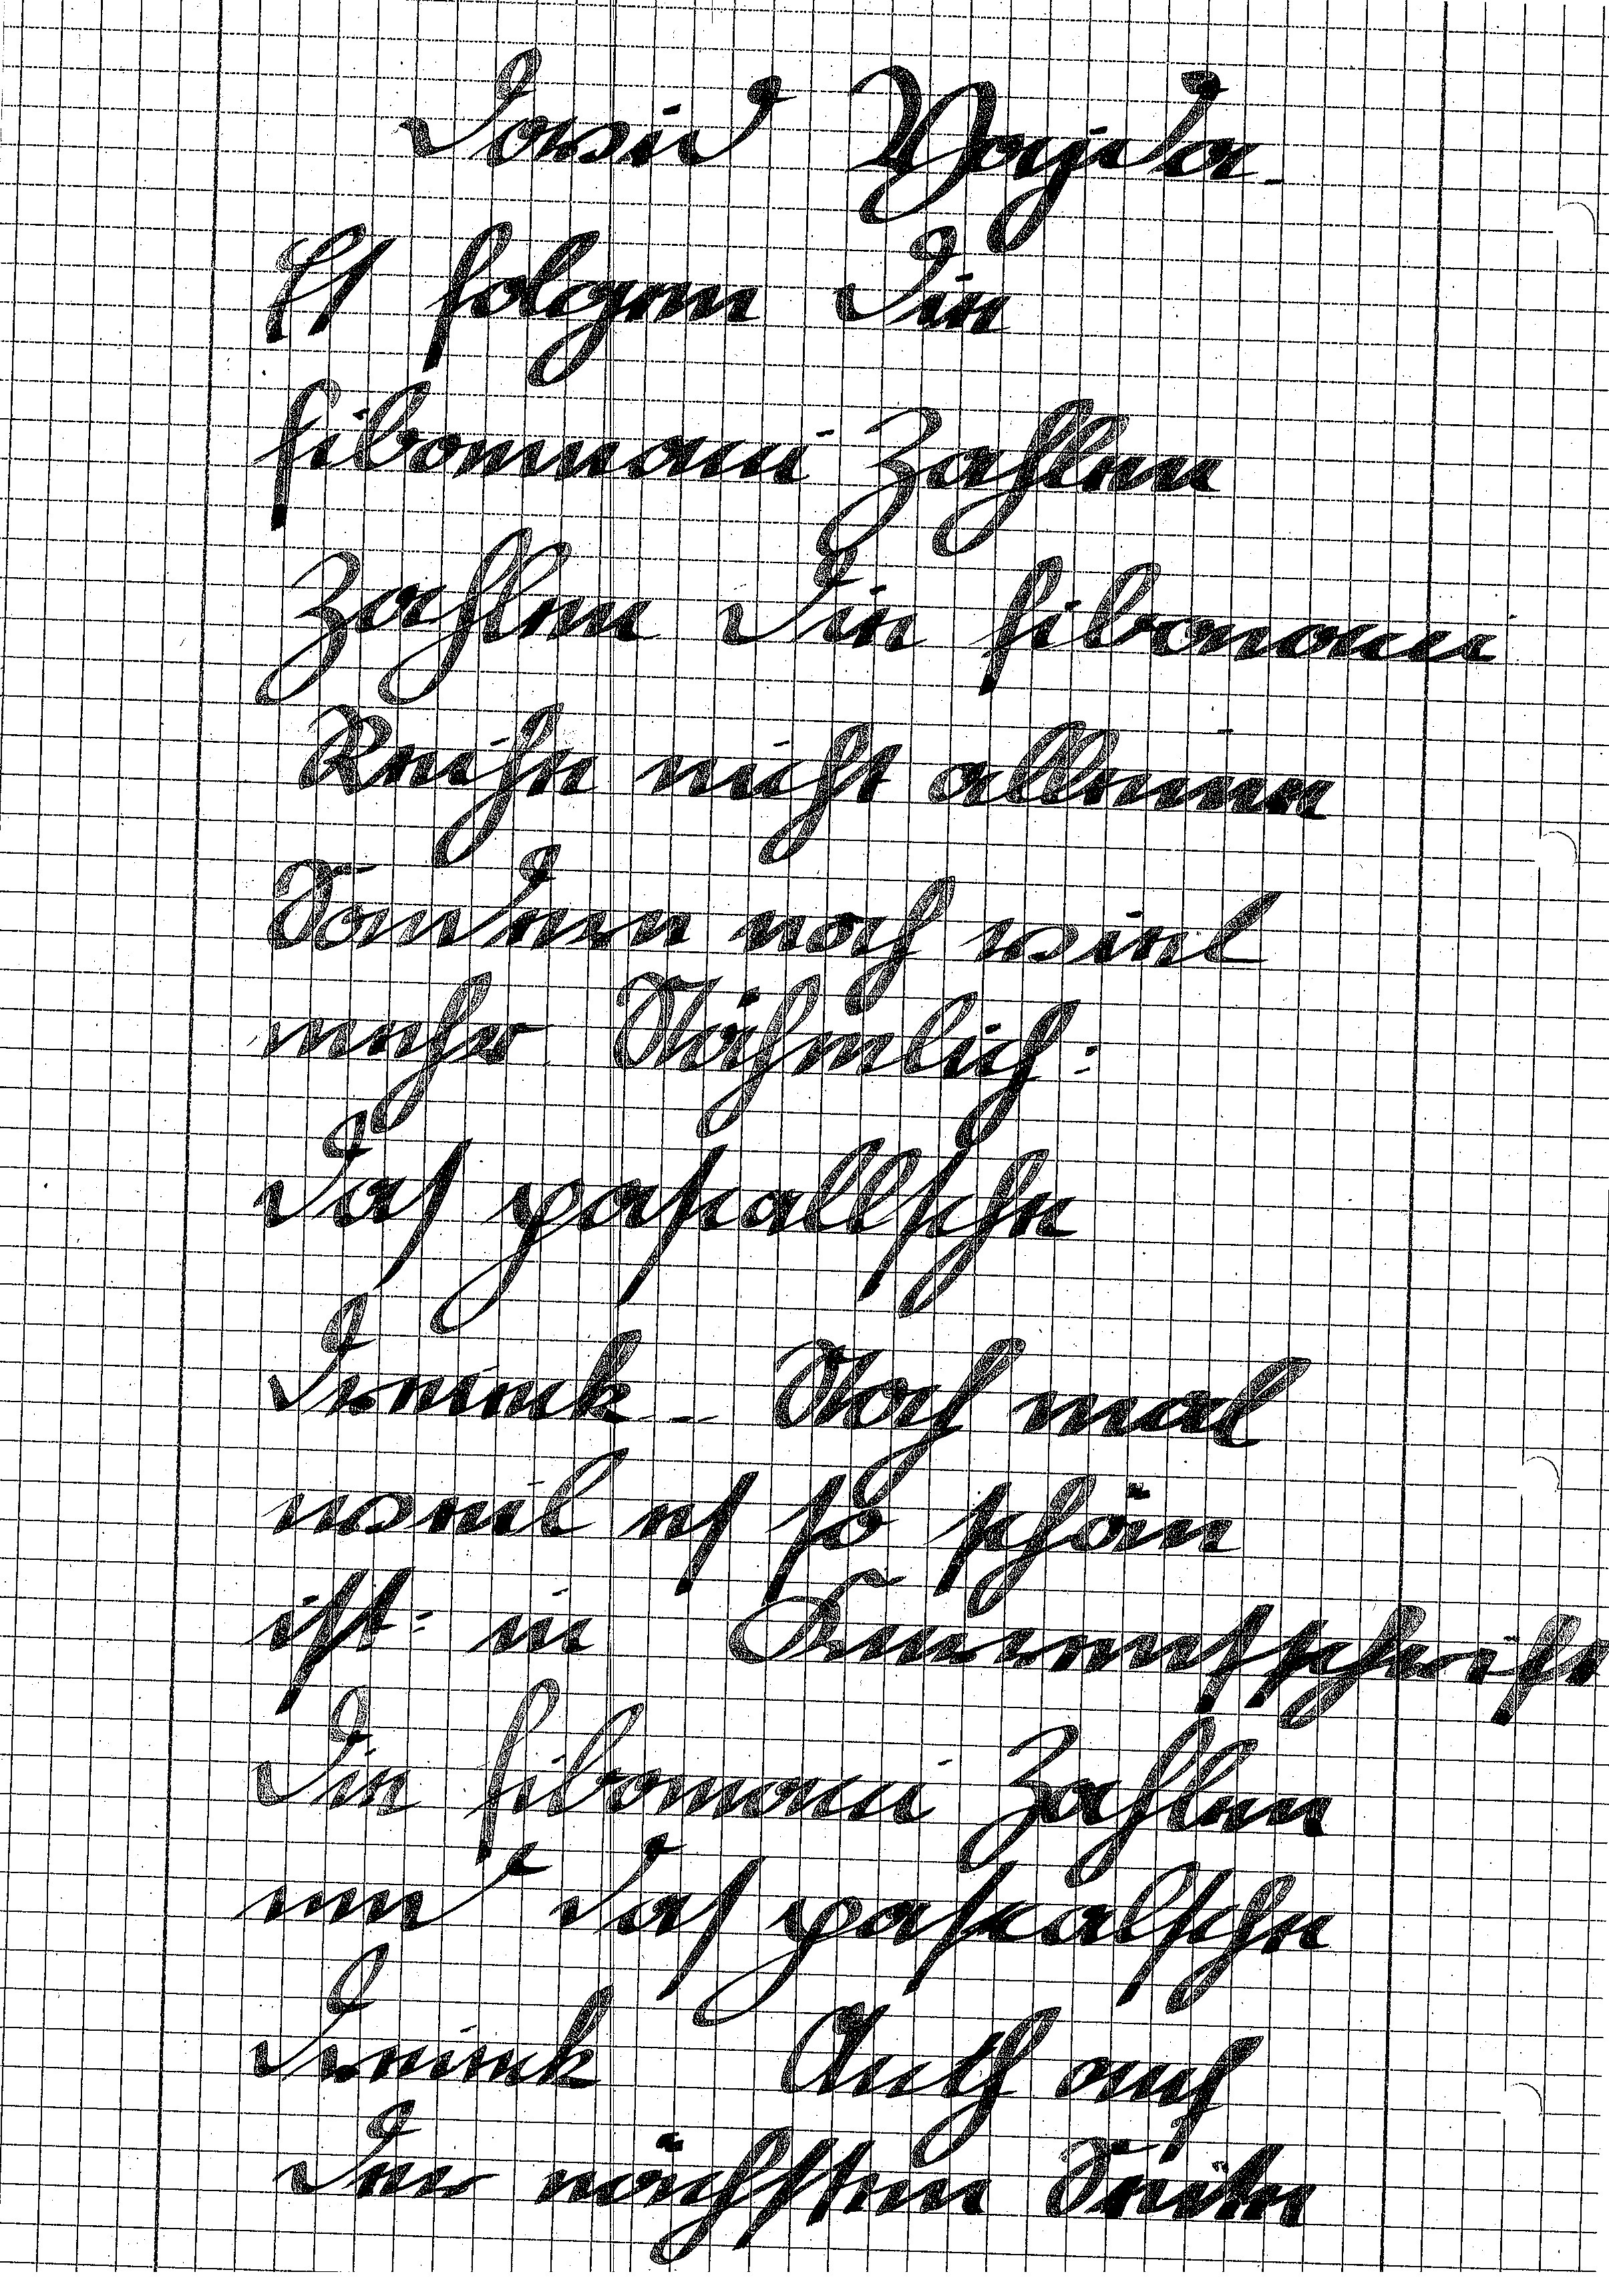 David Vajda.
Es folgen die
fibonnacci Zahlen
Zahlen die fibonacci
Reihe nicht alleine
Sondern noch viel
mehr Nähmlich:
das pascallsche
Dreieck – Noch mal
weil es so schön
ist: in Kurrentschrift
Die fibonacci Zahlen
und das pascalsche
Dreieck Auch auf
der nächsten Seite